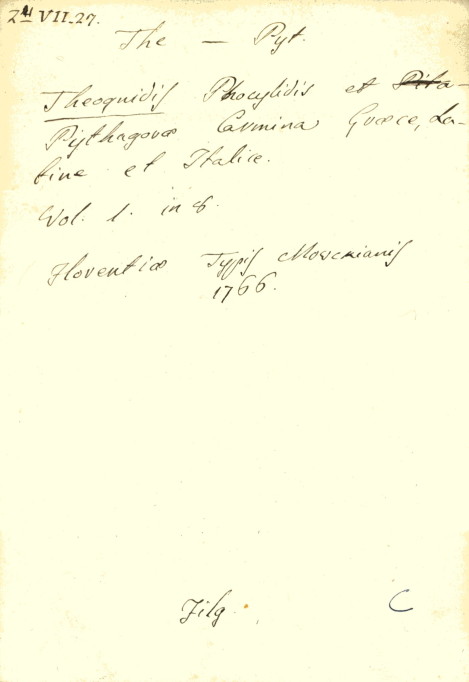 Za VII.27.
The — Pyt.
Theognidis Phocylidis et Pita-
Pythagoræ Carmina Græce, La-
tine et Italice.
Vol. 1. in 8.
Florentiæ Typis Mouckianis
1766.
Filg.
C